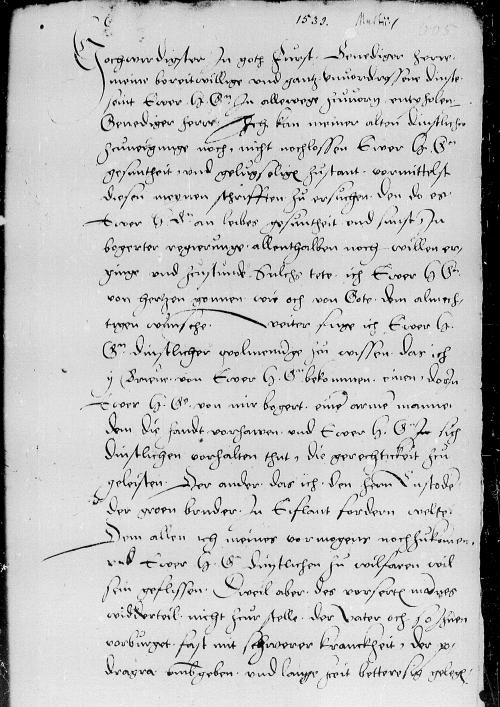 1533.
Hochwirdigster In goth Furst. Genediger herre
meine bereitwillige und gantz unverdrossene dinste
seint Ewer h. Gn. In allewege zuvorn entpholen
Genediger herre. Ich kan meiner alten dinstlichen
zcuneigunge noch, nicht nochlossen Ewer h. Gn.
gesuntheit, und gelugseligen zustant. vormittelst
diesen meynen schrifften zu ersuchen. den do es
Ewer h. Gn. an leibes gesuntheit und sunst, In
begerter regierunge. allenthalben noch willen er-
ginge und zustunde. Sulchs tete. ich Ewer h. Gn.
von hertzen gonnen. wie och von Gote. dem almech-
tigen wunsche. Weiter fuge ich Ewer h.
Gn. dinstlicher wolmeninge zu wissen. das ich
ij Brieve. von Ewer h. Gn. bekommen. einen, dorin
Ewer h. Gn. von mir begert. eine arme manne.
dem die handt vorhawen. und Ewer h. Gn. sich
dinstlichen vorhalten thut, die gerechtickeit zu
geleisten. Der ander. das ich. den hern Custoden
der groen bruder. In Eiflant fordern welte.
Dem allen ich meines vormogens nochzukomen.
und Ewer h. Gn. dinstlichen zu wilfaren wil
sein geflissen. Weil aber. des vorserten mannes
widderteil. nicht zcur stelle. der Vater och. so Inen
vorburget. fast mit schwerer kranckheit, der po-
dragra umbgeben. und lange zeit betteresig gelegen